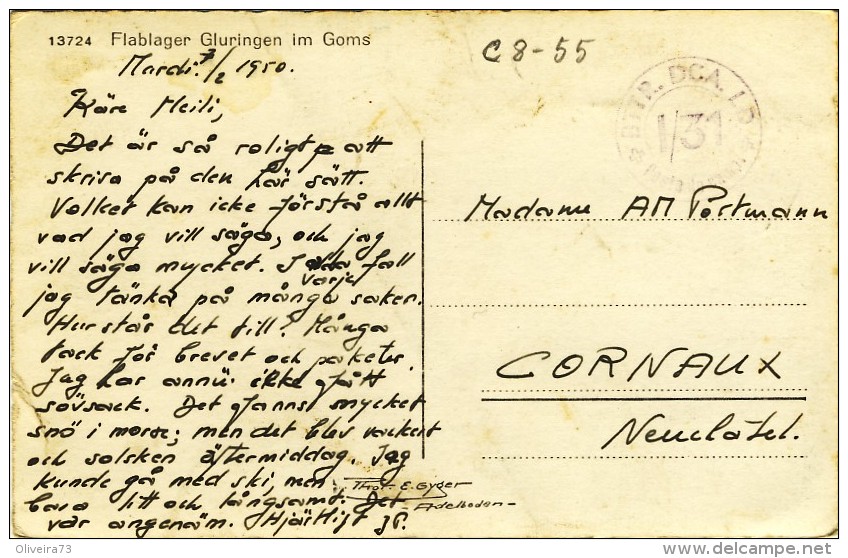 13724 Flablager Gluringen im Goms
C 8-55
Mardi 7/2 1950.
Käre Meili,
Det är så roligt att
skriva på den här sätt.
Volket kan icke förstå allt
vad jag vill säga, och jag
vill säga mycket. I varje fall
jag tänka på många saker.
Hur står det till? Många
tack för brevet och paketer.
Jag har annu ikke fått
sövsack. Det fanns mycket
snö i morse; men det blev vackert
och solsken äftermiddag. Jag
kunde gå med ski, men
bara litt och långsamt. Det
var angenäm. Hjärtligt JP.
Phot. E. Gyger
-Adelboden-
BTTR. DCA. L
1/31
Madame AM Portmann
CORNAUX
Neuchâtel.
© Oliveira73
www.delcampe.net